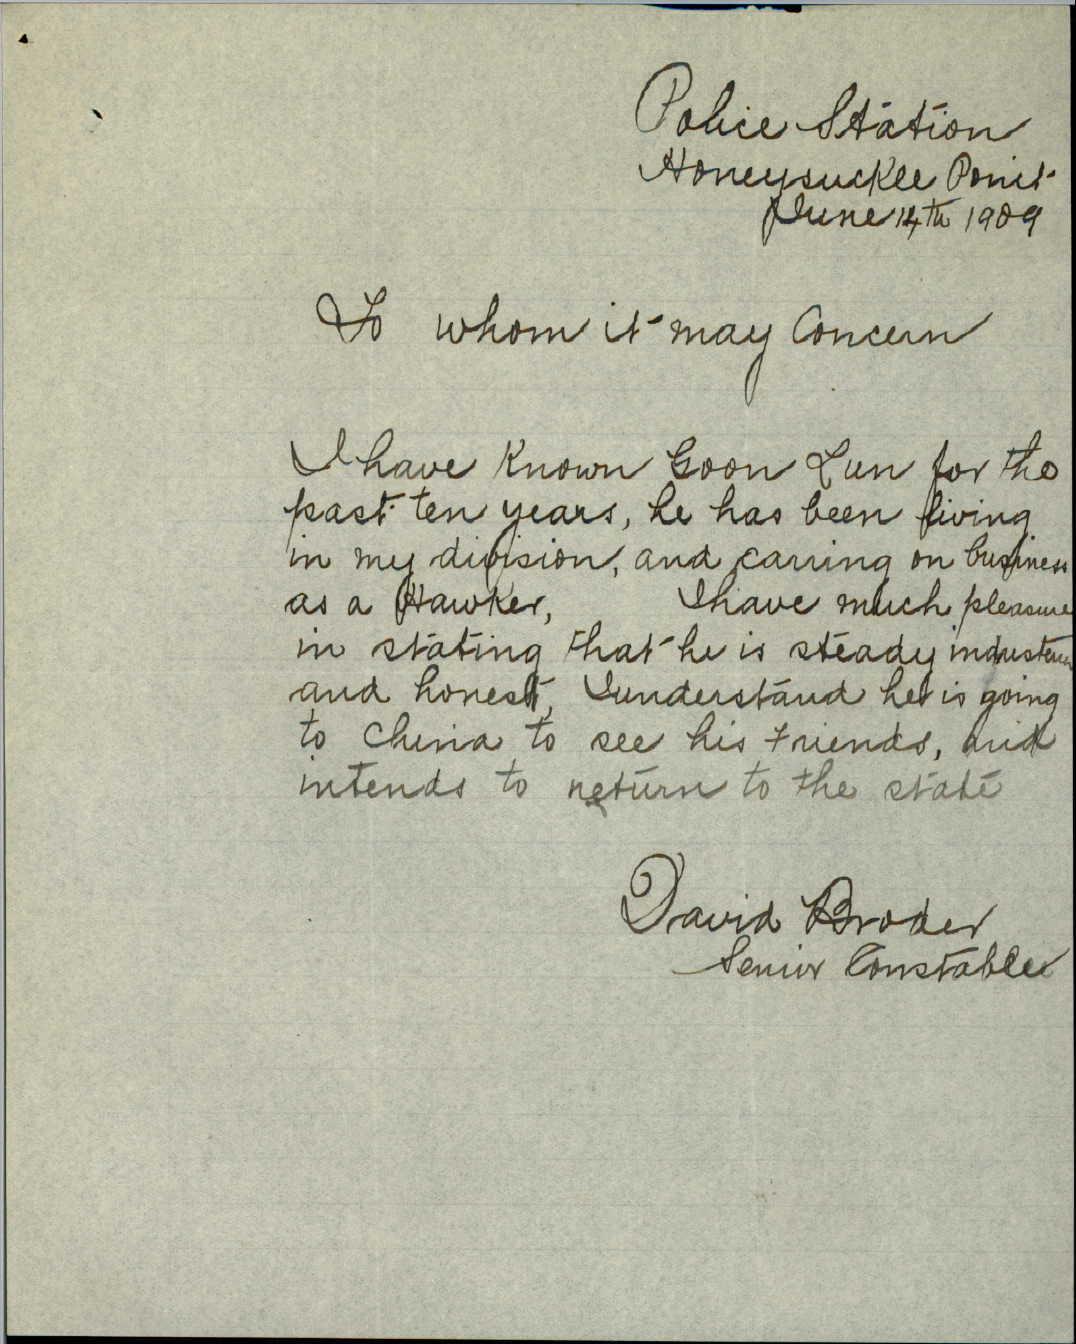 Police Station
Honeysuckle Point
June 14th 1909
To whom it may Concern
I have Known Goon Lun for the
past ten years, he has been living
in my division, and carring on business
as a Hawker, I have much pleasure
in stating that he is steady
and honest, I understand he is going
to China to see his Friends, and
intends to return to the state
David Broder
Senior Constable